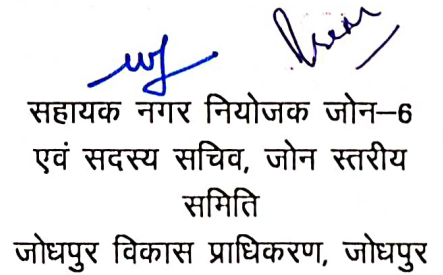 सहायक नगर नियोजक जोन–6
एवं सदस्य सचिव, जोन स्तरीय
समिति
जोधपुर विकास प्राधिकरण, जोधपुर